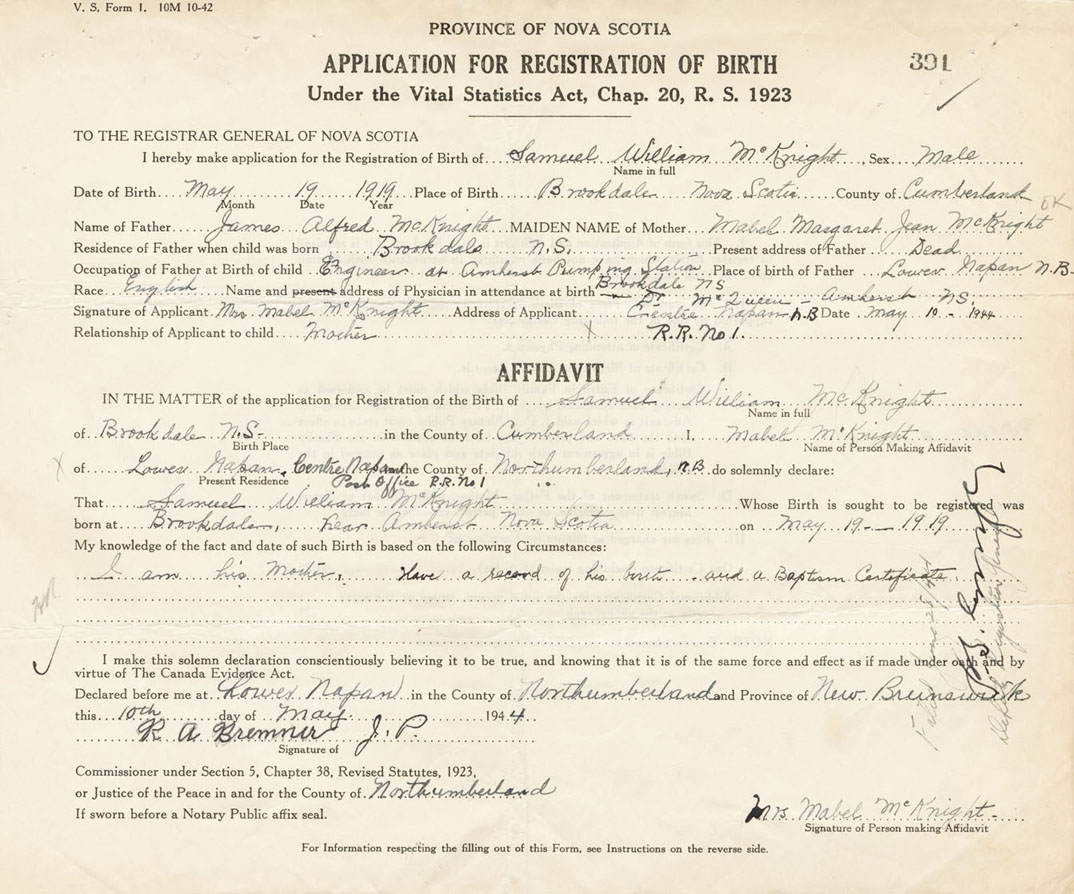 V. S. Form 1. 10M 10-42
PROVINCE OF NOVA SCOTIA
391
APPLICATION FOR REGISTRATION OF BIRTH
Under the Vital Statistics Act, Chap. 20, R. S. 1923
TO THE REGISTRAR GENERAL OF NOVA SCOTIA
I hereby make application for the Registration of Birth of Samuel William McKnight, Sex Male
Name in full
Date of Birth May 19 1919 Place of Birth Brookdale Nova Scotia County of Cumberland OK
Month Date Year
Name of Father James Alfred McKnight MAIDEN NAME of Mother Mabel Margaret Jean McKnight
Residence of Father when child was born Brookdale N.S. Present address of Father Dead
Occupation of Father at Birth of child Engineer at Amherst Pumping Station Place of birth of Father Lower Napan N.B.
Race English Name and present address of Physician in attendance at birth Brookdale NS
Dr McQueen - Amherst NS.
Signature of Applicant Mrs Mabel McKnight Address of Applicant Centre Napan N.B Date May 10 - 1944
Relationship of Applicant to child Mother R.R. No 1.
AFFIDAVIT
IN THE MATTER of the application for Registration of the Birth of Samuel William McKnight
Name in full
of Brookdale N.S- in the County of Cumberland I, Mabel McKnight
Birth Place Name of Person Making Affidavit
of Lower Napan, Centre Napan the County of Northumberland, N.B. do solemnly declare:
Present Residence Post Office R.R. No 1
That Samuel William McKnight Whose Birth is sought to be registered was
born at Brookdale, Near Amherst Nova Scotia on May 19 - 1919
My knowledge of the fact and date of such Birth is based on the following Circumstances:
I am his Mother, Have a record of his birth and a Baptism Certificate
I make this solemn declaration conscientiously believing it to be true, and knowing that it is of the same force and effect as if made under oath and by
virtue of The Canada Evidence Act.
Declared before me at Lower Napan in the County of Northumberland and Province of New Brunswick
this 10th day of May 1944
R A Bremner J. P.
Signature of
Commissioner under Section 5, Chapter 38, Revised Statutes, 1923,
or Justice of the Peace in and for the County of Northumberland
If sworn before a Notary Public affix seal.
Mrs Mabel McKnight
Signature of Person making Affidavit
For Information respecting the filling out of this Form, see Instructions on the reverse side.